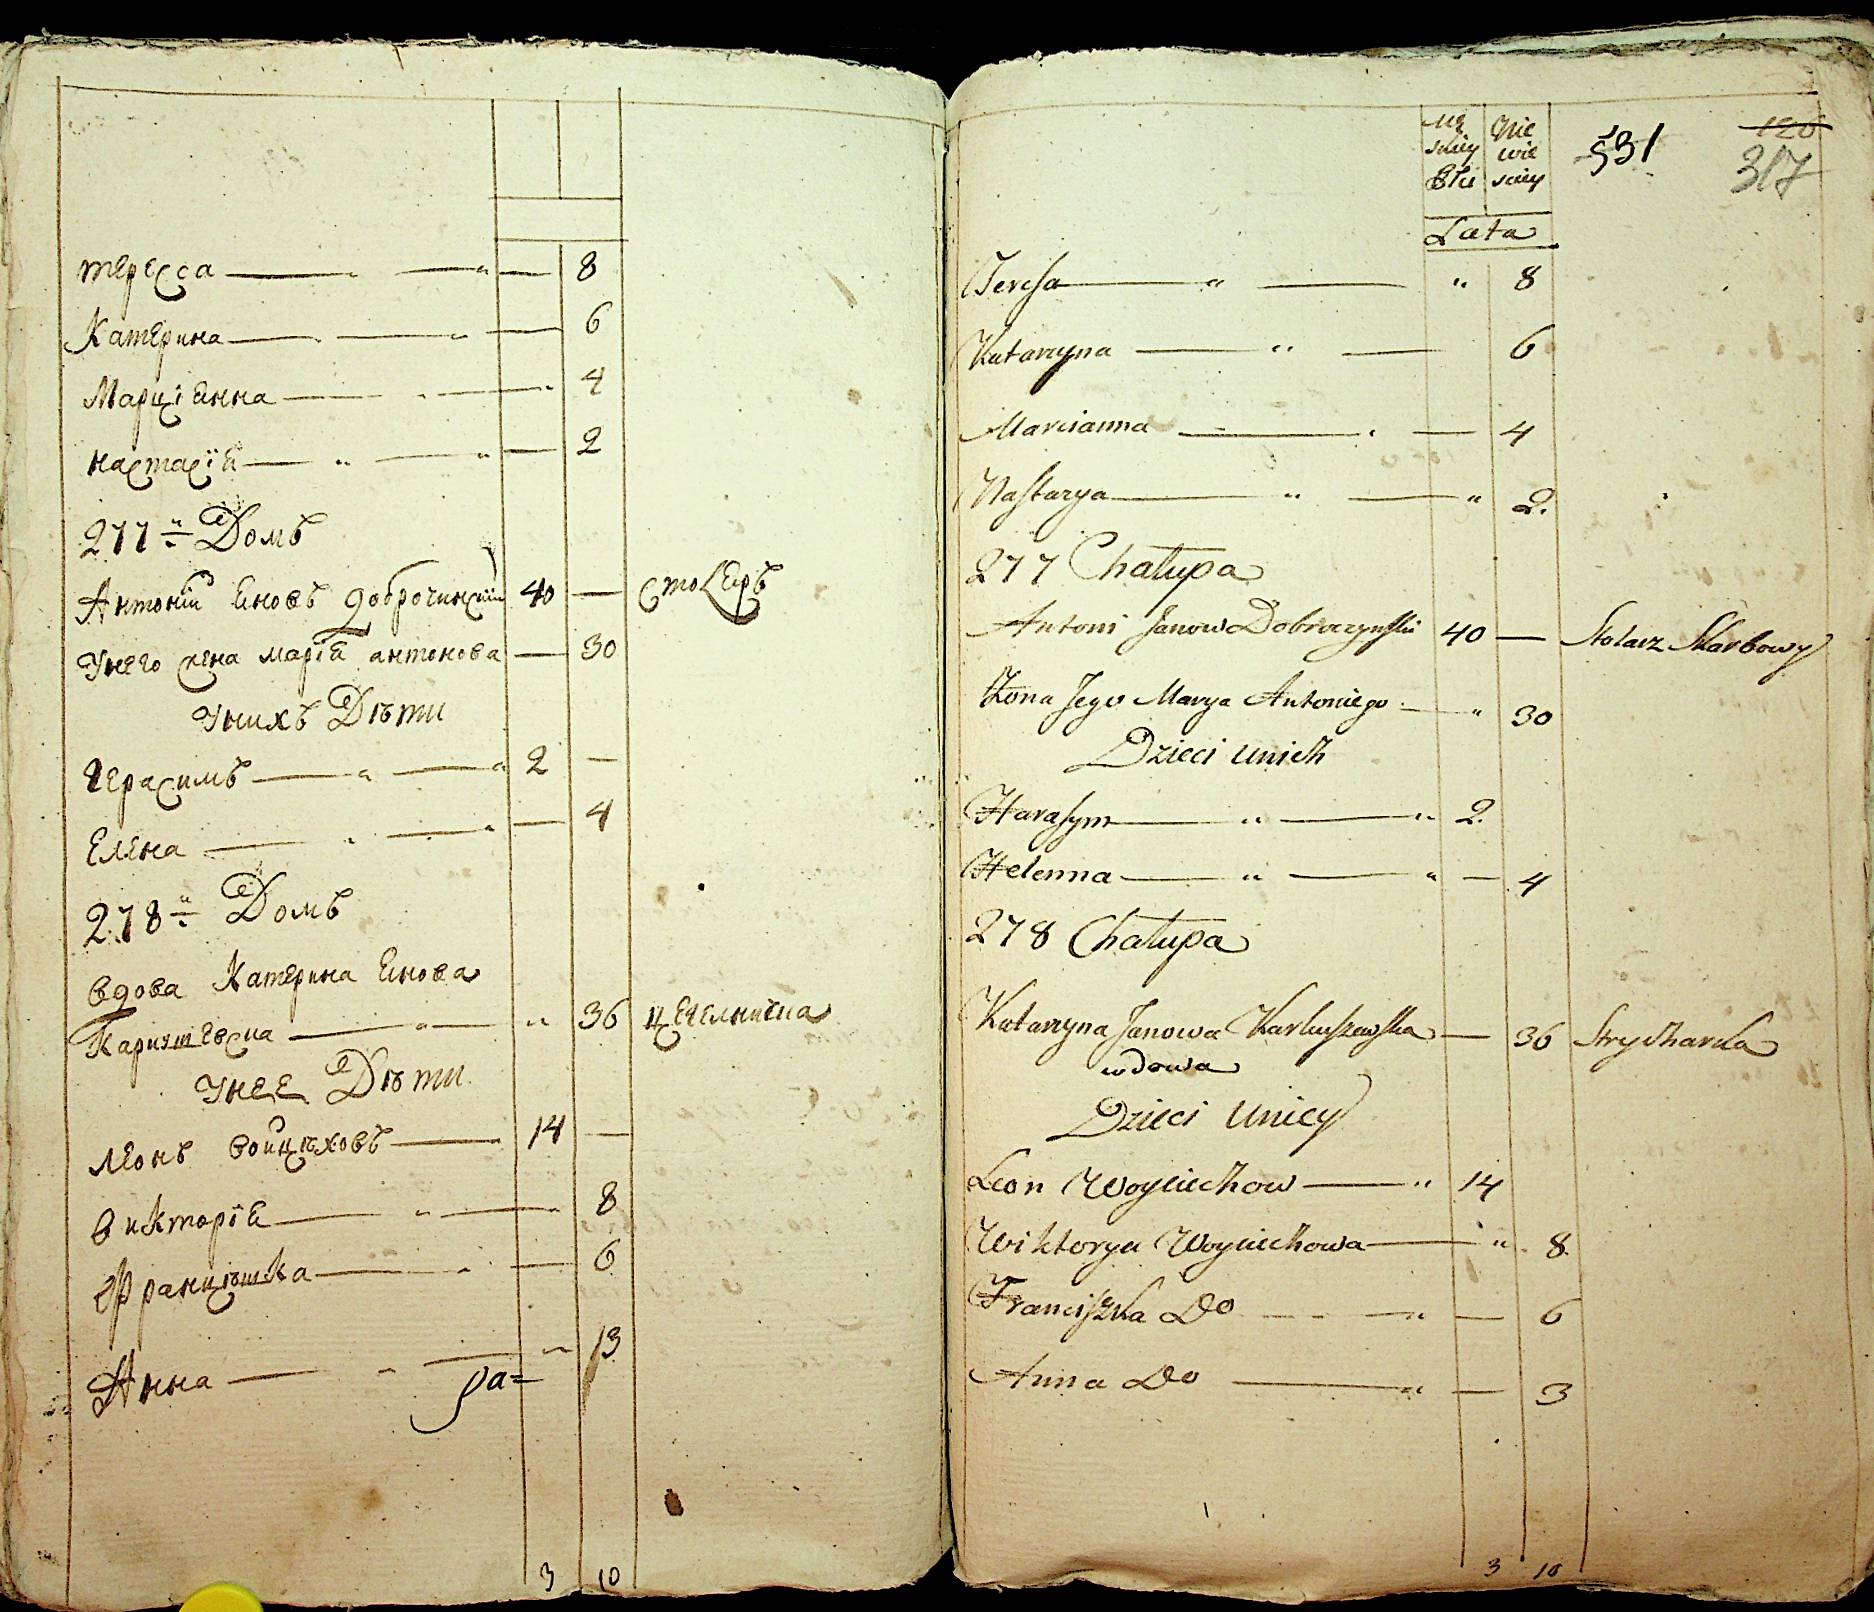 тересса — " — " — 8
Катерина — — " — 6
Марціянна — " — — " 4
настасія — " — " — 2
277й Домъ
Антоній яновъ доброчинскій 40 — столяръ
Унего жена марія антонова — 30
Унихъ Дѣти
Герасимъ — " — " 2 —
Елена — " — " — 4
278й Домъ
вдова Катерина янова
— " — " 36 цегелничка
Унее Дѣти
леонъ войцѣховъ — 14 —
викторія — " — 8
Францѣшка — " — 6
Анна — " — " 13
ра=
3 10
Mę skiey Płci
Nie wie sciey
531
126
317
Lata
Teressa — " — " 8
Katarzyna — " — 6
Marcianna — " — 4
Nastazya — " — " 2.
277 Chałupa
Antoni Janow Dobroczynski 40 — Stolarz Skarbowy
Żona Jego Marya Antoniego — " 30
Dzieci unich
Harasym — " — " 2.
Helenna — " — " — 4
278 Chałupa
Katarzyna Janowa Karluszewska — 36 Strycharka
wdowa
Dzieci Unicy
Leon Woyciechow — " 14
Wiktorya Woyciechowa — " 8
Franciszka Do — " — 6
Anna Do — " — 3
3 10